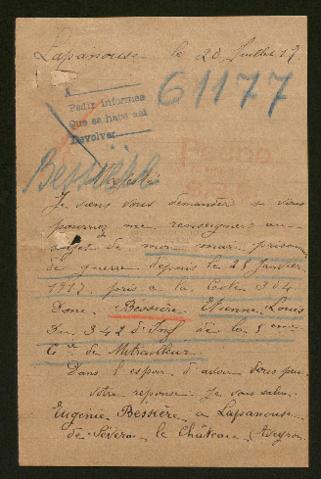 Lapanouse le 20 Juillet 17
A
Pedir informes
Que se haga así
Devolver
61177
Bessière
Je viens vous demander si vous
pourriez me renseigner au
sujet de mon mari prison
de guerre depuis le 25 Janvier
1917. pris a la Cote 304
Donc. Bessière Etienne Louis
Du 342 d'Inf de la 5 eme
Cie de Mitrailleur
Dans l'espoir d'avoir sous peu
votre reponse Je vous salue
Eugénie Bessière a Lapanouse
de Séverac le Château Aveyron